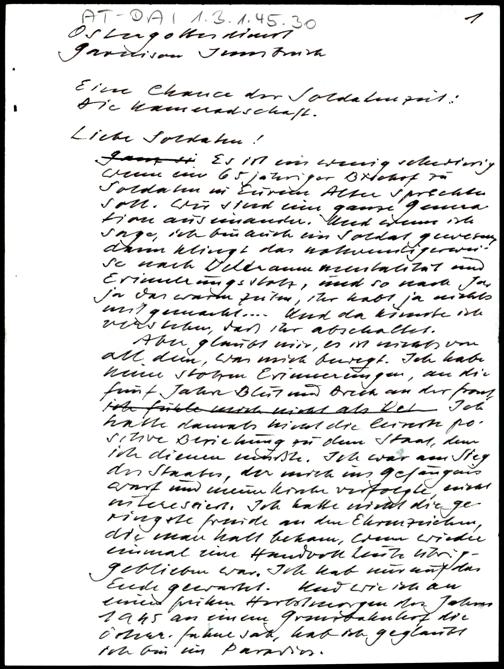 AT-DAI 1.3.1.45.30
1
Ostergottesdienst
Garnison Innsbruck
Eine Chance der Soldatenzeit:
Die Kameradschaft.
Liebe Soldaten!
Es ist ein wenig schwierig
wenn ein 65 jähriger Bischof zu
Soldaten in Eurem Alter sprechen
soll. Wir sind eine ganze Genera
tion auseinander. Und wenn ich
sage, ich bin auch ein Soldat gewesen,
dann klingt das notwendigerwei
se nach Veteranenmentalität und
Erinnerungsstolz, und so nach Ja,
ja das waren Zeiten, ihr habt ja nichts
mitgemacht.... Und da könnte ich
verstehen, daß ihr abschaltet.
Aber glaubt mir, es ist nichts von
all dem, was mich bewegt. Ich habe
keine stolzen Erinnerungen, an die
fünf Jahre Blut und Dreck an der Front
ich fühle mich nicht als Vet Ich
hatte damals nicht die leiseste po-
sitive Beziehung zu dem Staat, dem
ich dienen mußte. Ich war am Sieg
des Staates, der mich ins Gefängnis
warf und meine Kirche verfolgte, nicht
interessiert. Ich hatte nicht die ge
ringste Freude an den Ehrenzeichen,
die man halt bekam, wenn wieder
einmal eine Handvoll Leute übrig-
geblieben war. Ich hab nur auf das
Ende gewartet. Und wie ich an
einem frühen Herbstmorgen des Jahres
1945 an einem Grenzbahnhof die
österr. Fahne sah, hab ich geglaubt
ich bin im Paradies.